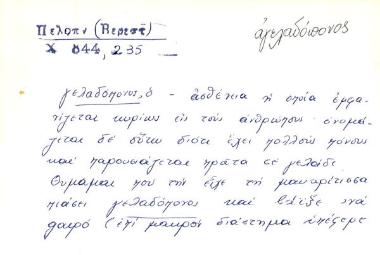 Πελοπν (Βερεστ)
ἀγελαδόπονος
Χ 044, 235
γελαδόπονος, ὁ - ἀσθένεια ἡ ὁποία ἐμφα-
νίζεται κυρίως εἰς τοὺς ἀνθρώπους ὀνομά-
ζεται δὲ οὕτω διότι ἔχει πολλούς πόνους
και παρουσιάζεται πρῶτα σὲ γελάδι.
Θυμᾶμαι που τὴν εἶχε τὴ μακαρίτισσα
πιάσει γελαδόπονος και ἔκανε
καιρό (ἐπί μακρόν διάστημα ὑπέφερε